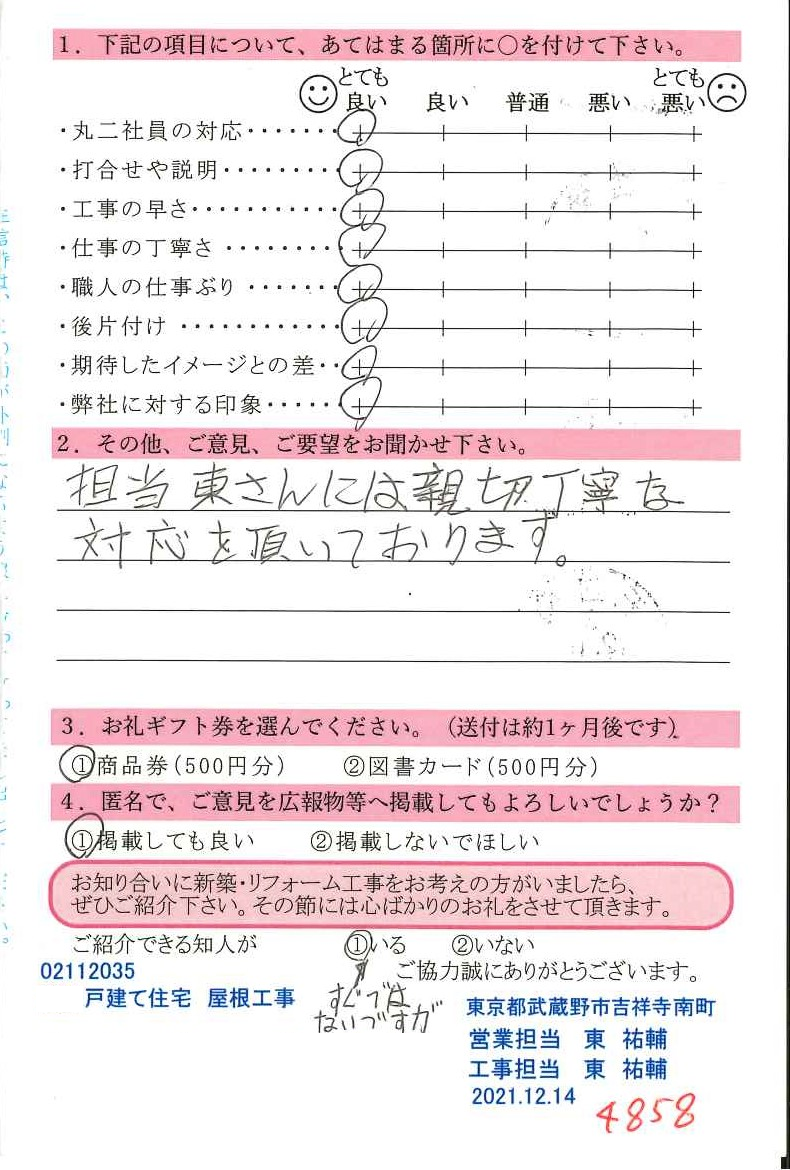 1．下記の項目について、あてはまる箇所に○を付けて下さい。
とても良い 良い 普通 悪い とても悪い
・丸二社員の対応・・・・・・・
・打合せや説明・・・・・・・・・
・工事の早さ・・・・・・・・・・・
・仕事の丁寧さ ・・・・・・・・・
・職人の仕事ぶり ・・・・・・・
・後片付け ・・・・・・・・・・・・
・期待したイメージとの差・・
・弊社に対する印象・・・・・・
2．その他、ご意見、ご要望をお聞かせ下さい。
担当東さんには親切丁寧な
対応を頂いております。
3．お礼ギフト券を選んでください。（送付は約1ヶ月後です）
①商品券（500円分） ②図書カード（500円分）
4．匿名で、ご意見を広報物等へ掲載してもよろしいでしょうか？
①掲載しても良い ②掲載しないでほしい
お知り合いに新築・リフォーム工事をお考えの方がいましたら、
ぜひご紹介下さい。その節には心ばかりのお礼をさせて頂きます。
ご紹介できる知人が ①いる ②いない
02112035
ご協力誠にありがとうございます。
戸建て住宅 屋根工事
すぐでは
ないですが
東京都武蔵野市吉祥寺南町
営業担当 東 祐輔
工事担当 東 祐輔
2021.12.14
4858